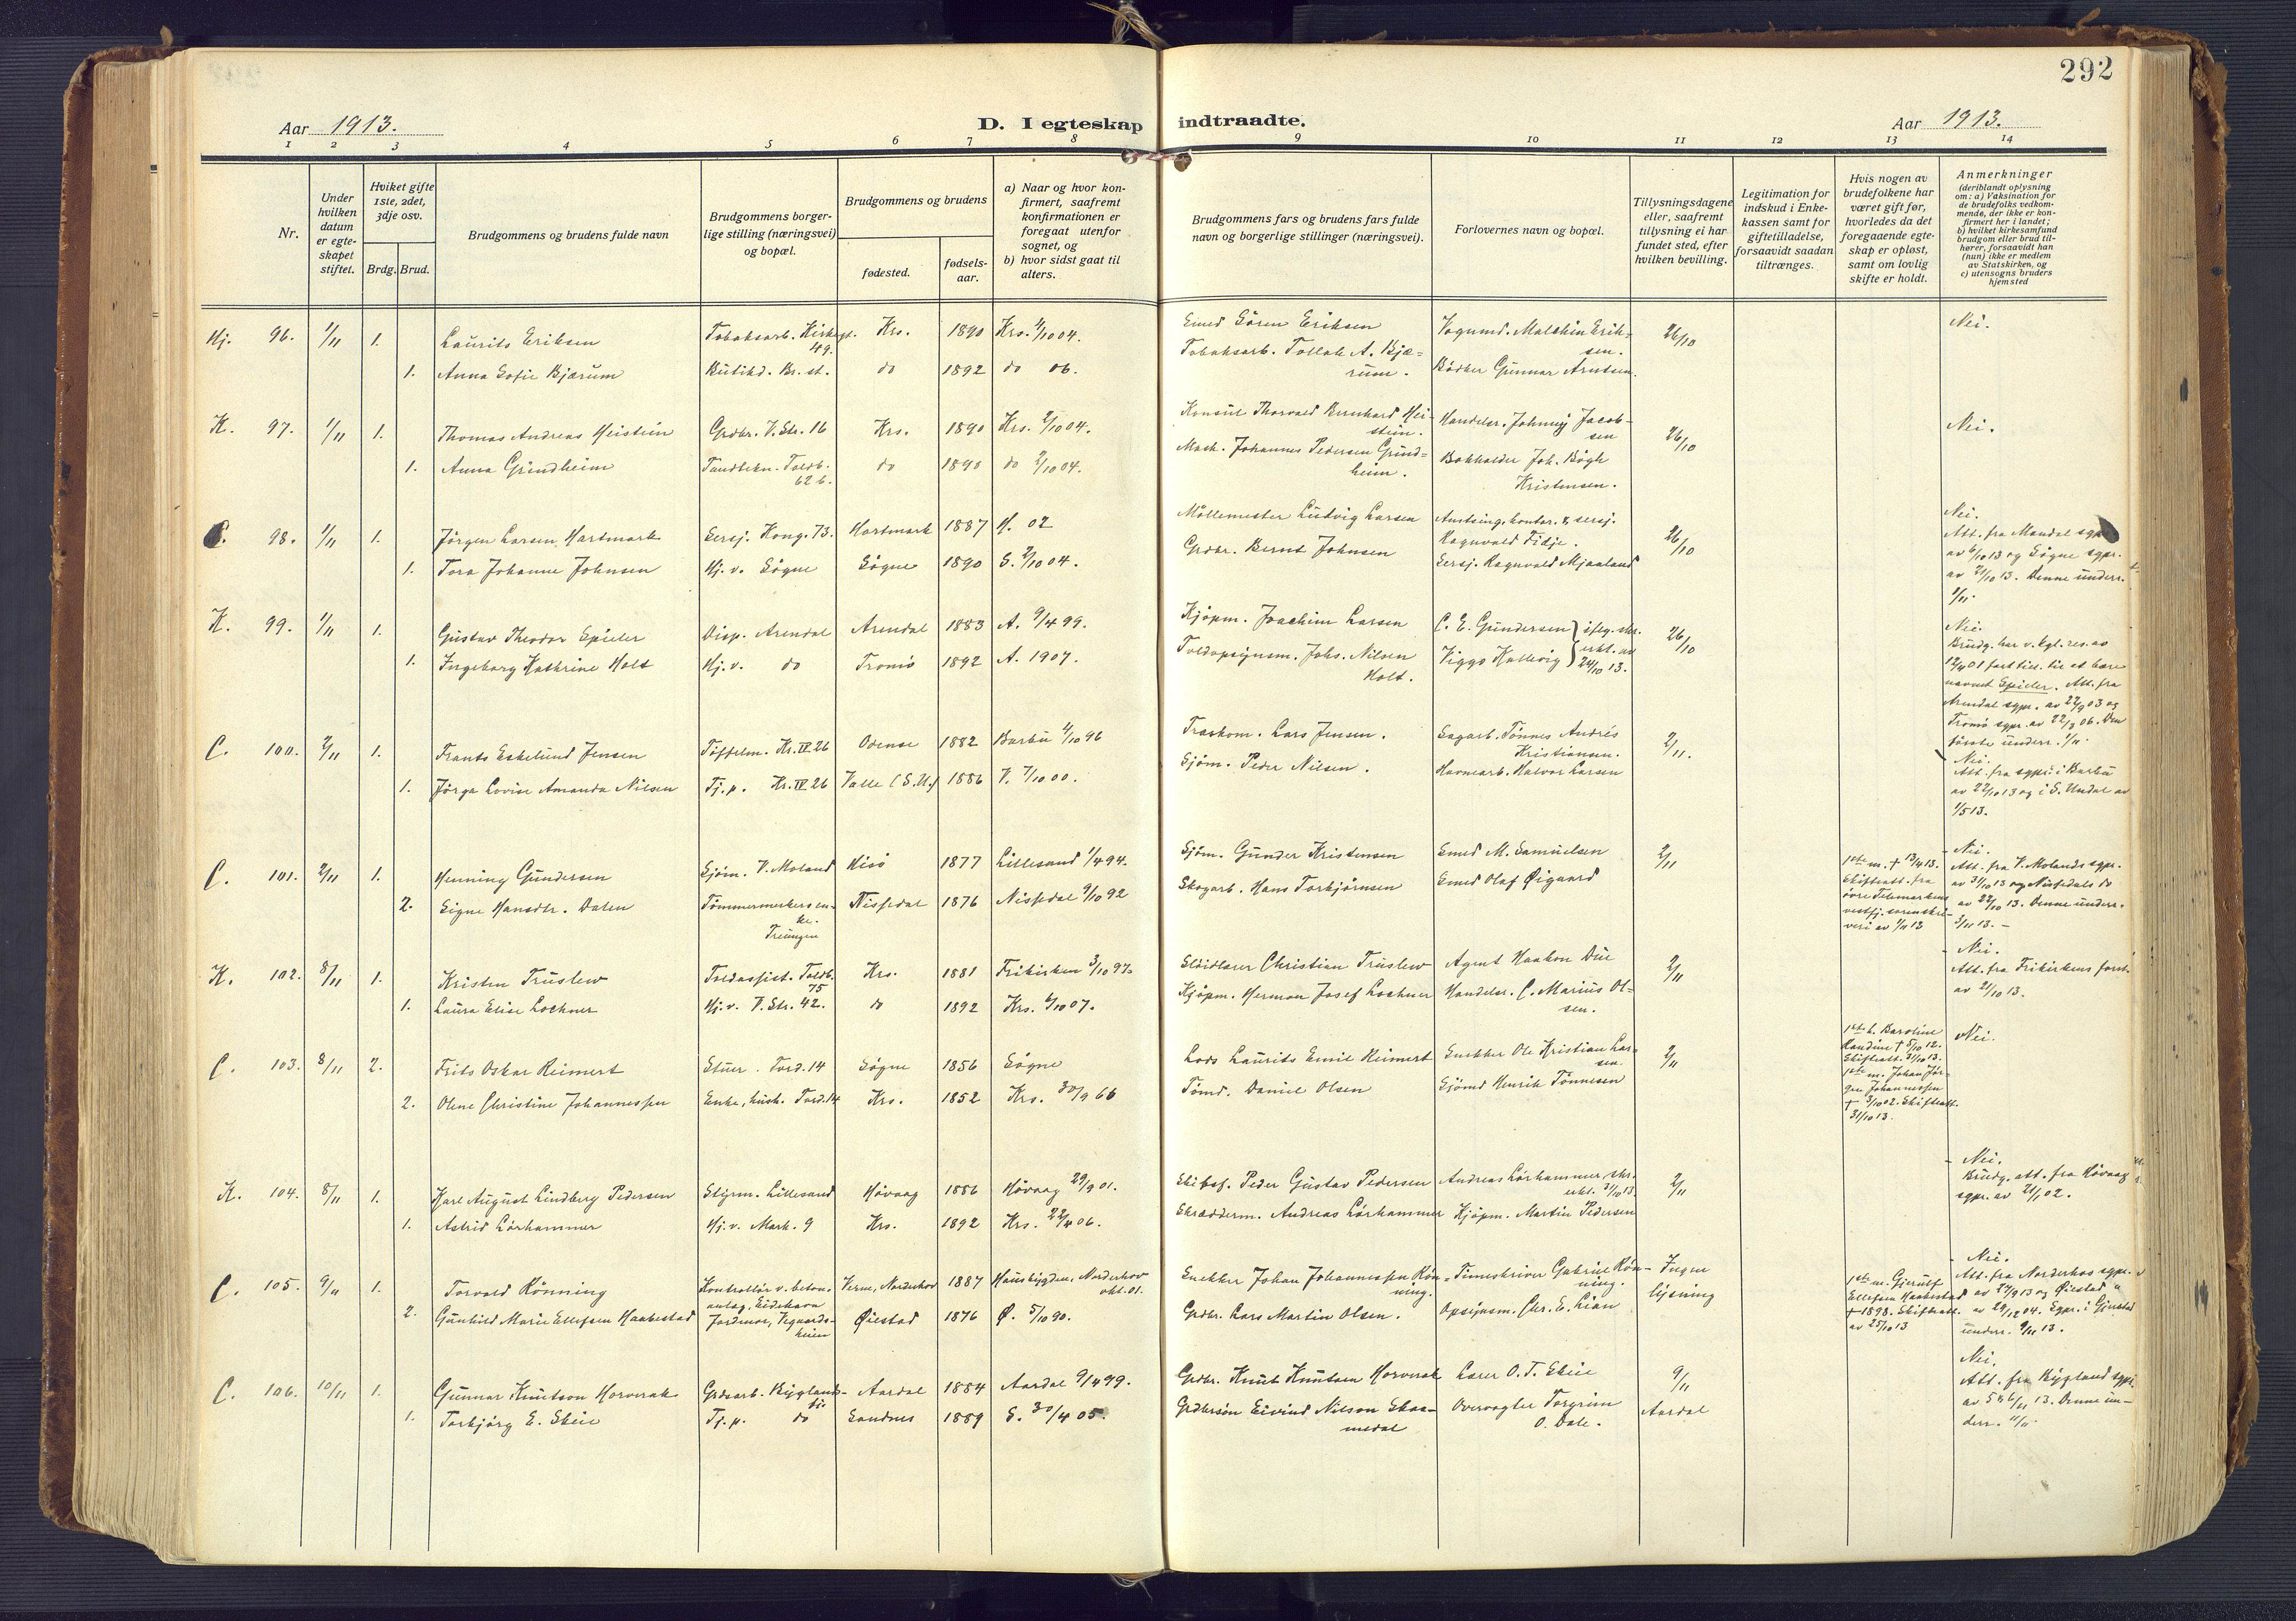 292
Aar 1913.
D. I egteskap indtraadte.
Aar 1913.
1 2 3 4 5 6 7 8 9 10 11 12 13 14
Nr.
Under hvilken datum er egteskapet stiftet.
Hviket gifte 1ste, 2det, 3dje osv.
Brdg. Brud.
Brudgommens og brudens fulde navn
Brudgommens borgerlige stilling (næringsvei) og bopæl.
Brudgommens og brudens
fødested.
fødselsaar.
a) Naar og hvor konfirmert, saafremt konfirmationen er foregaat utenfor sognet, og
b) hvor sidst gaat til alters.
Brudgommens fars og brudens fars fulde navn og borgerlige stillinger (næringsvei).
Forlovernes navn og bopæl.
Tillysningsdagene eller, saafremt tillysning ei har fundet sted, efter hvilken bevilling.
Legitimation for indskud i Enkekassen samt for giftetilladelse, forsaavidt saadan tiltrænges.
Hvis nogen av brudefolkene har været gift før, hvorledes da det foregaaende egteskap er opløst, samt om lovlig skifte er holdt.
Anmerkninger
(deriblandt oplysning om: a) Vaksination for de brudefolks vedkommende, der ikke er konfirmert her i landet; b) hvilket kirkesamfund brudgom eller brud tilhører, forsaavidt han (hun) ikke er medlem av Statskirken, og c) utensogns bruders hjemsted
Hj. 96. 1/11 1. Laurits Eriksen Tobaksarb. Kirkegt. 49. Krs. 1890 Krs. 2/10 04. Smed Sören Eriksen Vognmd. Malthin Eriksen. 26/10 Nei.
1. Anna Sofie Bjærum Butikd. Br. st. do 1892 do 06. Tobaksarb. Tollak A. Bjærum. Bödker Gunnar Arntsen.
K. 97. 1/11 1. Thomas Andreas Heistein Grdbr. V. Str. 16 Krs. 1890 Krs. 2/10 04. Konsul Thorvald Bernhard Heistein. Handelsr. Johnny Jacobsen 26/10 Nei.
1. Anna Grindheim Tandtekn. Toldb. 62 b. do 1890 do 2/10 04. Mask. Johannes Pedersen Grindheim. Bokholder Joh. Bögh Kristensen.
98. 1/11 1. Jörgen Larsen Hartmark Sersj. Kong. 73. Hartmark 1887 H. 02 Möllemester Ludvig Larsen Amtsing. kontor. & sersj. Ragnvald Tidje. 26/10 Nei. Att. fra Mandal sgpr. av 6/10 13 og Sögne sgpr. av 21/10 13. Denne underr. 1/11.
1. Tora Johanne Johnsen Hj. v. Sögne Sögne 1890 S. 2/10 04. Grdbr. Bernt Johnsen Sersj. Ragnvald Mjaaland
K. 99. 1/11 1. Gustav Theodor Spieler Disp. Arendal Arendal 1883 A. 9/4 99. Kjöpm. Joachim Larsen C. E. Gundersen iflg. skr. erkl. av 24/10 13. 26/10 Nei. Brudg. har v. kgl. res. av 12/4 01 faat till. til at bære navnet Spieler. Att. fra Arendal sgpr. av 27/9 03 og Tromö sgpr. av 22/3 06. Den første underr. 1/11.
1. Ingeborg Kathrine Holt Hj. v. do Tromö 1892 A. 1907. Toldopsynsm. Johs. Nilsen Holt. Viggo Hallevig
C. 100. 2/11 1. Frants Eskelund Jensen Töffelm. Kr. IV 26 Odense 1882 Barbu 4/10 96 Traskom. Lars Jensen. Sagarb. Tönnes Andrés Kristiansen. 2/11. Nei. Att. fra sgpr. i Barbu av 22/10 13 og i S. Undal av 1/5 13.
1. Jörga Lovise Amanda Nilsen Tj. p. Kr. IV 26 Valle (S. U.) 1886 V. 7/10 00. Sjöm. Peder Nilsen. Havnearb. Halvor Larsen
C. 101. 2/11 1. Henning Gundersen Sjöm. V. Moland Hisö 1877 Lillesand 1/4 94. Sjöm. Gunder Kristensen Smed M. Samuelsen 2/11 1ste m. † 13/4 13. Skifteatt. fra övre Telemarkens vestfj. sorenskriveri av 1/11 13 Nei. Att. fra V. Molands sgpr. av 31/10 13 og Nissedals do av 22/10 13. Denne underr. 3/11 13. –
2. Signe Hansdtr. Dalen Tömmermerkers enke. Treungen Nissedal 1876 Nissedal 9/10 92 Skogarb. Hans Torbjörnsen Smed Olaf Øigaard
K. 102. 8/11 1. Kristen Truslew Toldassist. Toldb. 75 Krs. 1881 Frikirken 3/10 97. Slöidlærer Christian Truslew Agent Haakon Due 2/11 Nei. Att. fra Frikirkens forst. av 21/10 13.
1. Laura Elise Lochner Hj. v. V. Str. 42. do 1892 Krs. 6/10 07. Kjöpm. Herman Josef Lochner Handelsr. C. Marius Olsen.
C. 103. 8/11 2. Frits Oskar Reimert Stuer. Tord. 14 Sögne 1856 Sögne Lods Laurits Emil Reimert Snekker Ole Kristian Larsen. 2/11 1ste h. Baroline Randine † 5/10 12. Skifteatt. 31/10 13. 1ste m. Johan Jörgen Johannessen † 3/10 02. Skifteatt. 31/10 13. Nei.
2. Oline Christine Johannessen Enke, hush. Tord. 14 Krs. 1852 Krs. 30/9 66 Tömd. Daniel Olsen Sjömd Henrik Tönnesen
K. 104. 8/11 1. Karl August Lindberg Pedersen Styrm. Lillesand Høvaag 1886 Høvaag 29/9 01. Skibsf. Peder Gustav Pedersen Andreas Lörhammer skr. erkl. 31/10 13. 2/11 Nei. Brudg. att. fra Høvaag sgpr. av 21/1 02.
1. Astrid Lörhammer Hj. v. Mark. 9 Krs. 1892 Krs. 22/4 06. Skrædderm. Andreas Lörhammer Kjöpm. Martin Pedersen
C. 105. 9/11 1. Torvald Rönning Kontrollör v. betonanlag, Eidehavn Verne, Norderhov 1887 Haushygden, Norderhov okt. 01. Snekker Johan Johannessen Rönning. Timeskriver Gabriel Rönning. Ingen lysning 1ste m. Gjerulf Ellefsen Haabestad † 1898. Skifteatt. av 25/10 13 Nei. Att. fra Norderhov sgpr. av 27/9 13 og Øiestad " av 29/12 04. Sgpr. i Gjerstad underr. 9/11 13.
2. Gunhild Marie Ellefsen Haabestad Jordmor, Øiestad 1876 Ø. 5/10 90. Grdbr. Lars Martin Olsen. Opsynsm. Chr. E. Lian
C. 106. 10/11 1. Gunnar Knutson Horverak Grdsarb. Byglandsfj. Aardal 1884 Aardal 9/4 99. Grdbr. Knut Knutsen Horverak Lærer O. T. Skeie 9/11 Aardal Nei. Att. fra Bygland sgpr. av 5 & 6/11 13. Denne underr. 11/11.
1. Torbjörg E. Skeie Tj. p. do Sandnes 1889 S. 30/4 05. Grdbrsön Eivind Nilson Skaamedal Overvogter Torgrim O. Dale.